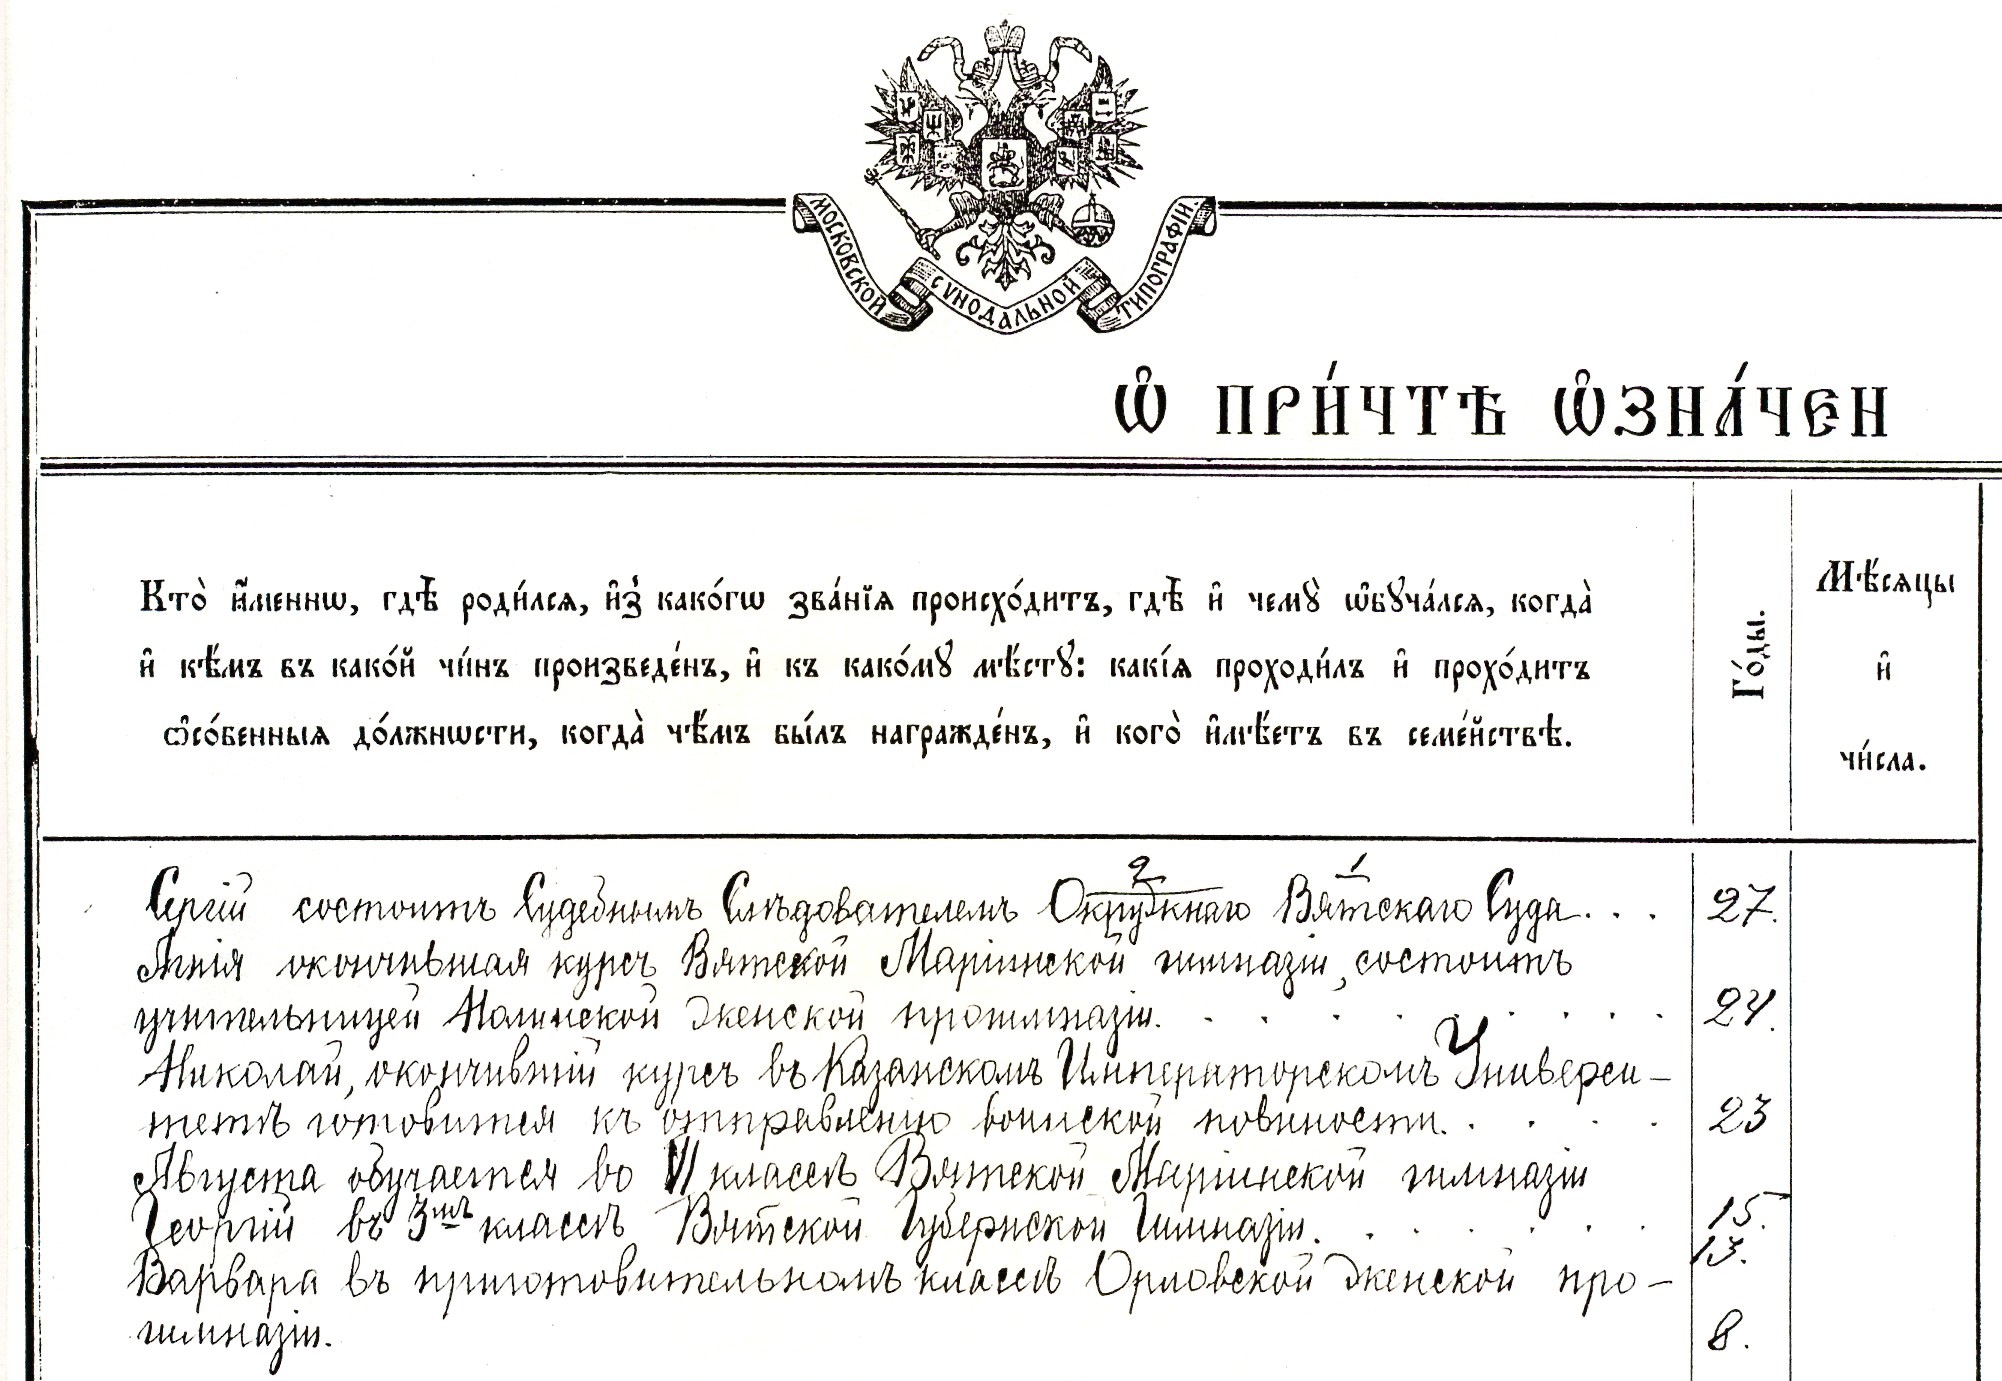 МОСКОВСКОЙ СѴНОДАЛЬНОЙ ТИПОГРАФІИ.
Ѽ ПРИ́ЧТѢ Ѽ҆ЗНА́ЧЕН
Кто̀ и҆́меннѡ, гдѣ роди́лсѧ, и҆з̾ како́гѡ зва́нїѧ происхо́дитъ, гдѣ и҆ чемꙋ̀ ѡ҆бꙋча́лсѧ, когда̀
и҆ кѣ́мъ въ како́й чи́нъ произведе́нъ, и҆ къ како́мꙋ мѣ́стꙋ: какі́ѧ проходи́лъ и҆ прохо́дитъ
ѡ҆со́бенныѧ до́лжнѡсти, когда̀ чѣ́мъ бы́лъ награжде́нъ, и҆ кого̀ и҆мѣ́етъ въ семе́йствѣ.
Го́ды.
Мѣ́сѧцы
и҆
чи́сла.
Сергій состоитъ Судебнымъ Слѣдователемъ 2 Окружнаго 1 Вятскаго Суда... 27.
Лидія окончившая курсъ Вятской Маріинской гимназіи, состоитъ
учительницей Нолинской женской прогимназіи. 24.
Николай, окончившій курсъ въ Казанскомъ Императорскомъ Универси-
тетѣ готовится къ отправленію воинской повиности. 23
Августа обучается во VI классѣ Вятской Маріинской гимназіи 15.
Георгій въ 3мъ классѣ Вятской Губернской Гимназіи. 13.
Варвара въ приготовительномъ классѣ Орловской женской про-
гимназіи. 8.